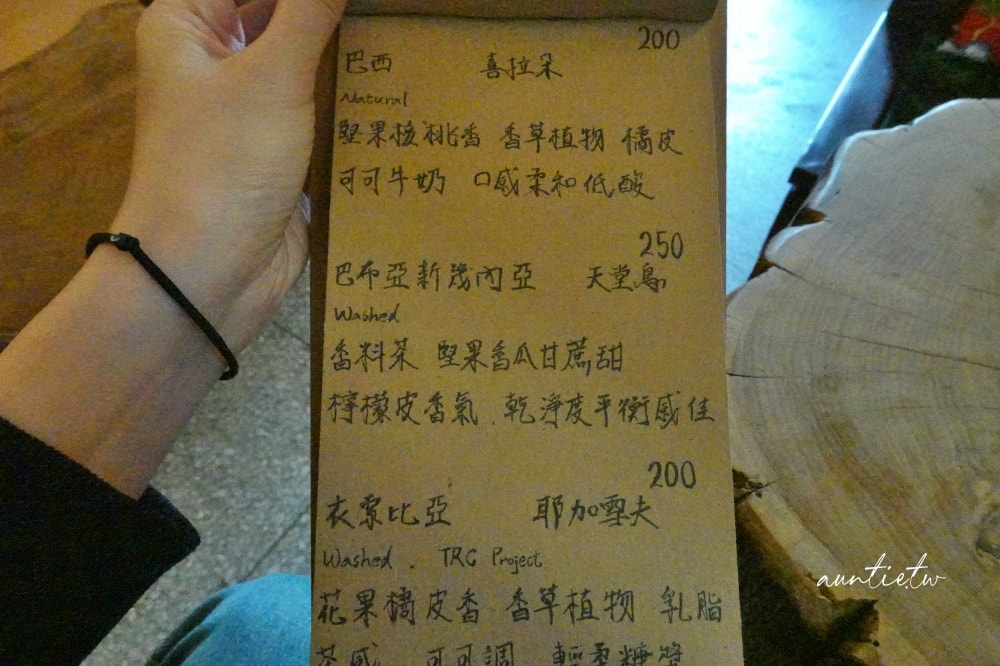 200
巴西 喜拉朵
Natural
堅果核桃香 香草植物 橘皮
可可牛奶 口感柔和低酸
250
巴布亞新幾內亞 天堂鳥
Washed
香料茶 堅果香瓜甘蔗甜
檸檬皮香氣.乾淨度平衡感佳
200
衣索比亞 耶加雪夫
Washed . TRC Project
花果橘皮香 香草植物 乳脂
茶感 可可調
auntie.tw